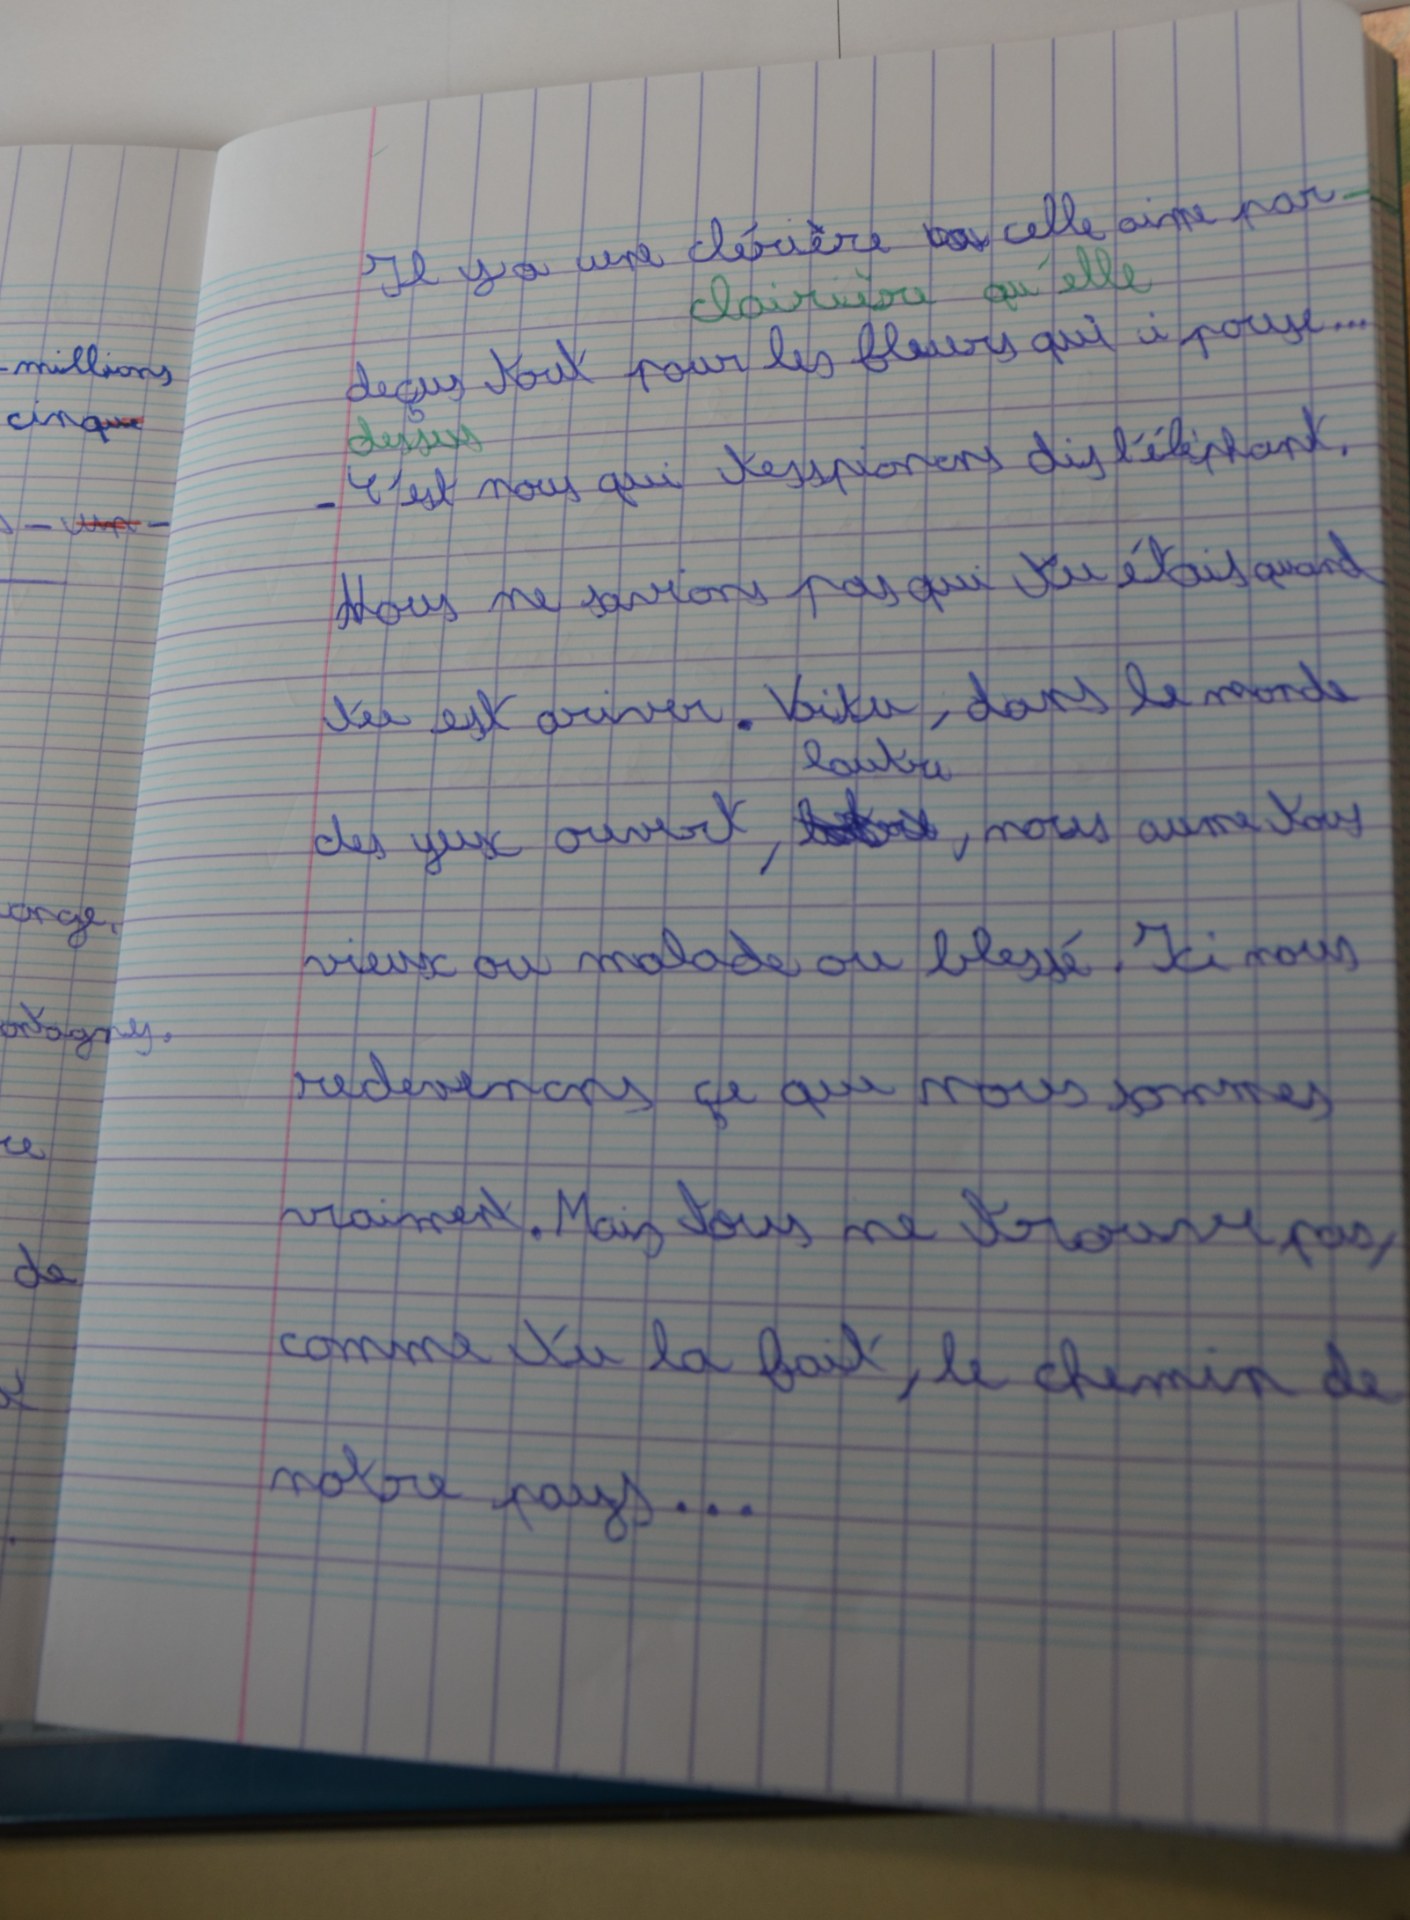 millions
cinque
- un -
ange.
ontagny.
re
de
Il y a une clérière celle aime par-
clairière qu'elle
deçus tout pour les fleurs qui i pouse...
dessus
- C'est nous qui tesspionons dis l'éléphant.
Nous ne savions pas qui tu étais quand
tu est ariver. Voitu, dans le monde
loutre
des yeux ouvert, , nous aume tous
vieux ou malade ou blessé. Ici nous
redevenons çe que nous sommes
vraiment. Mais tous ne trouve pas,
comme tu la fait, le chemin de
notre pays...